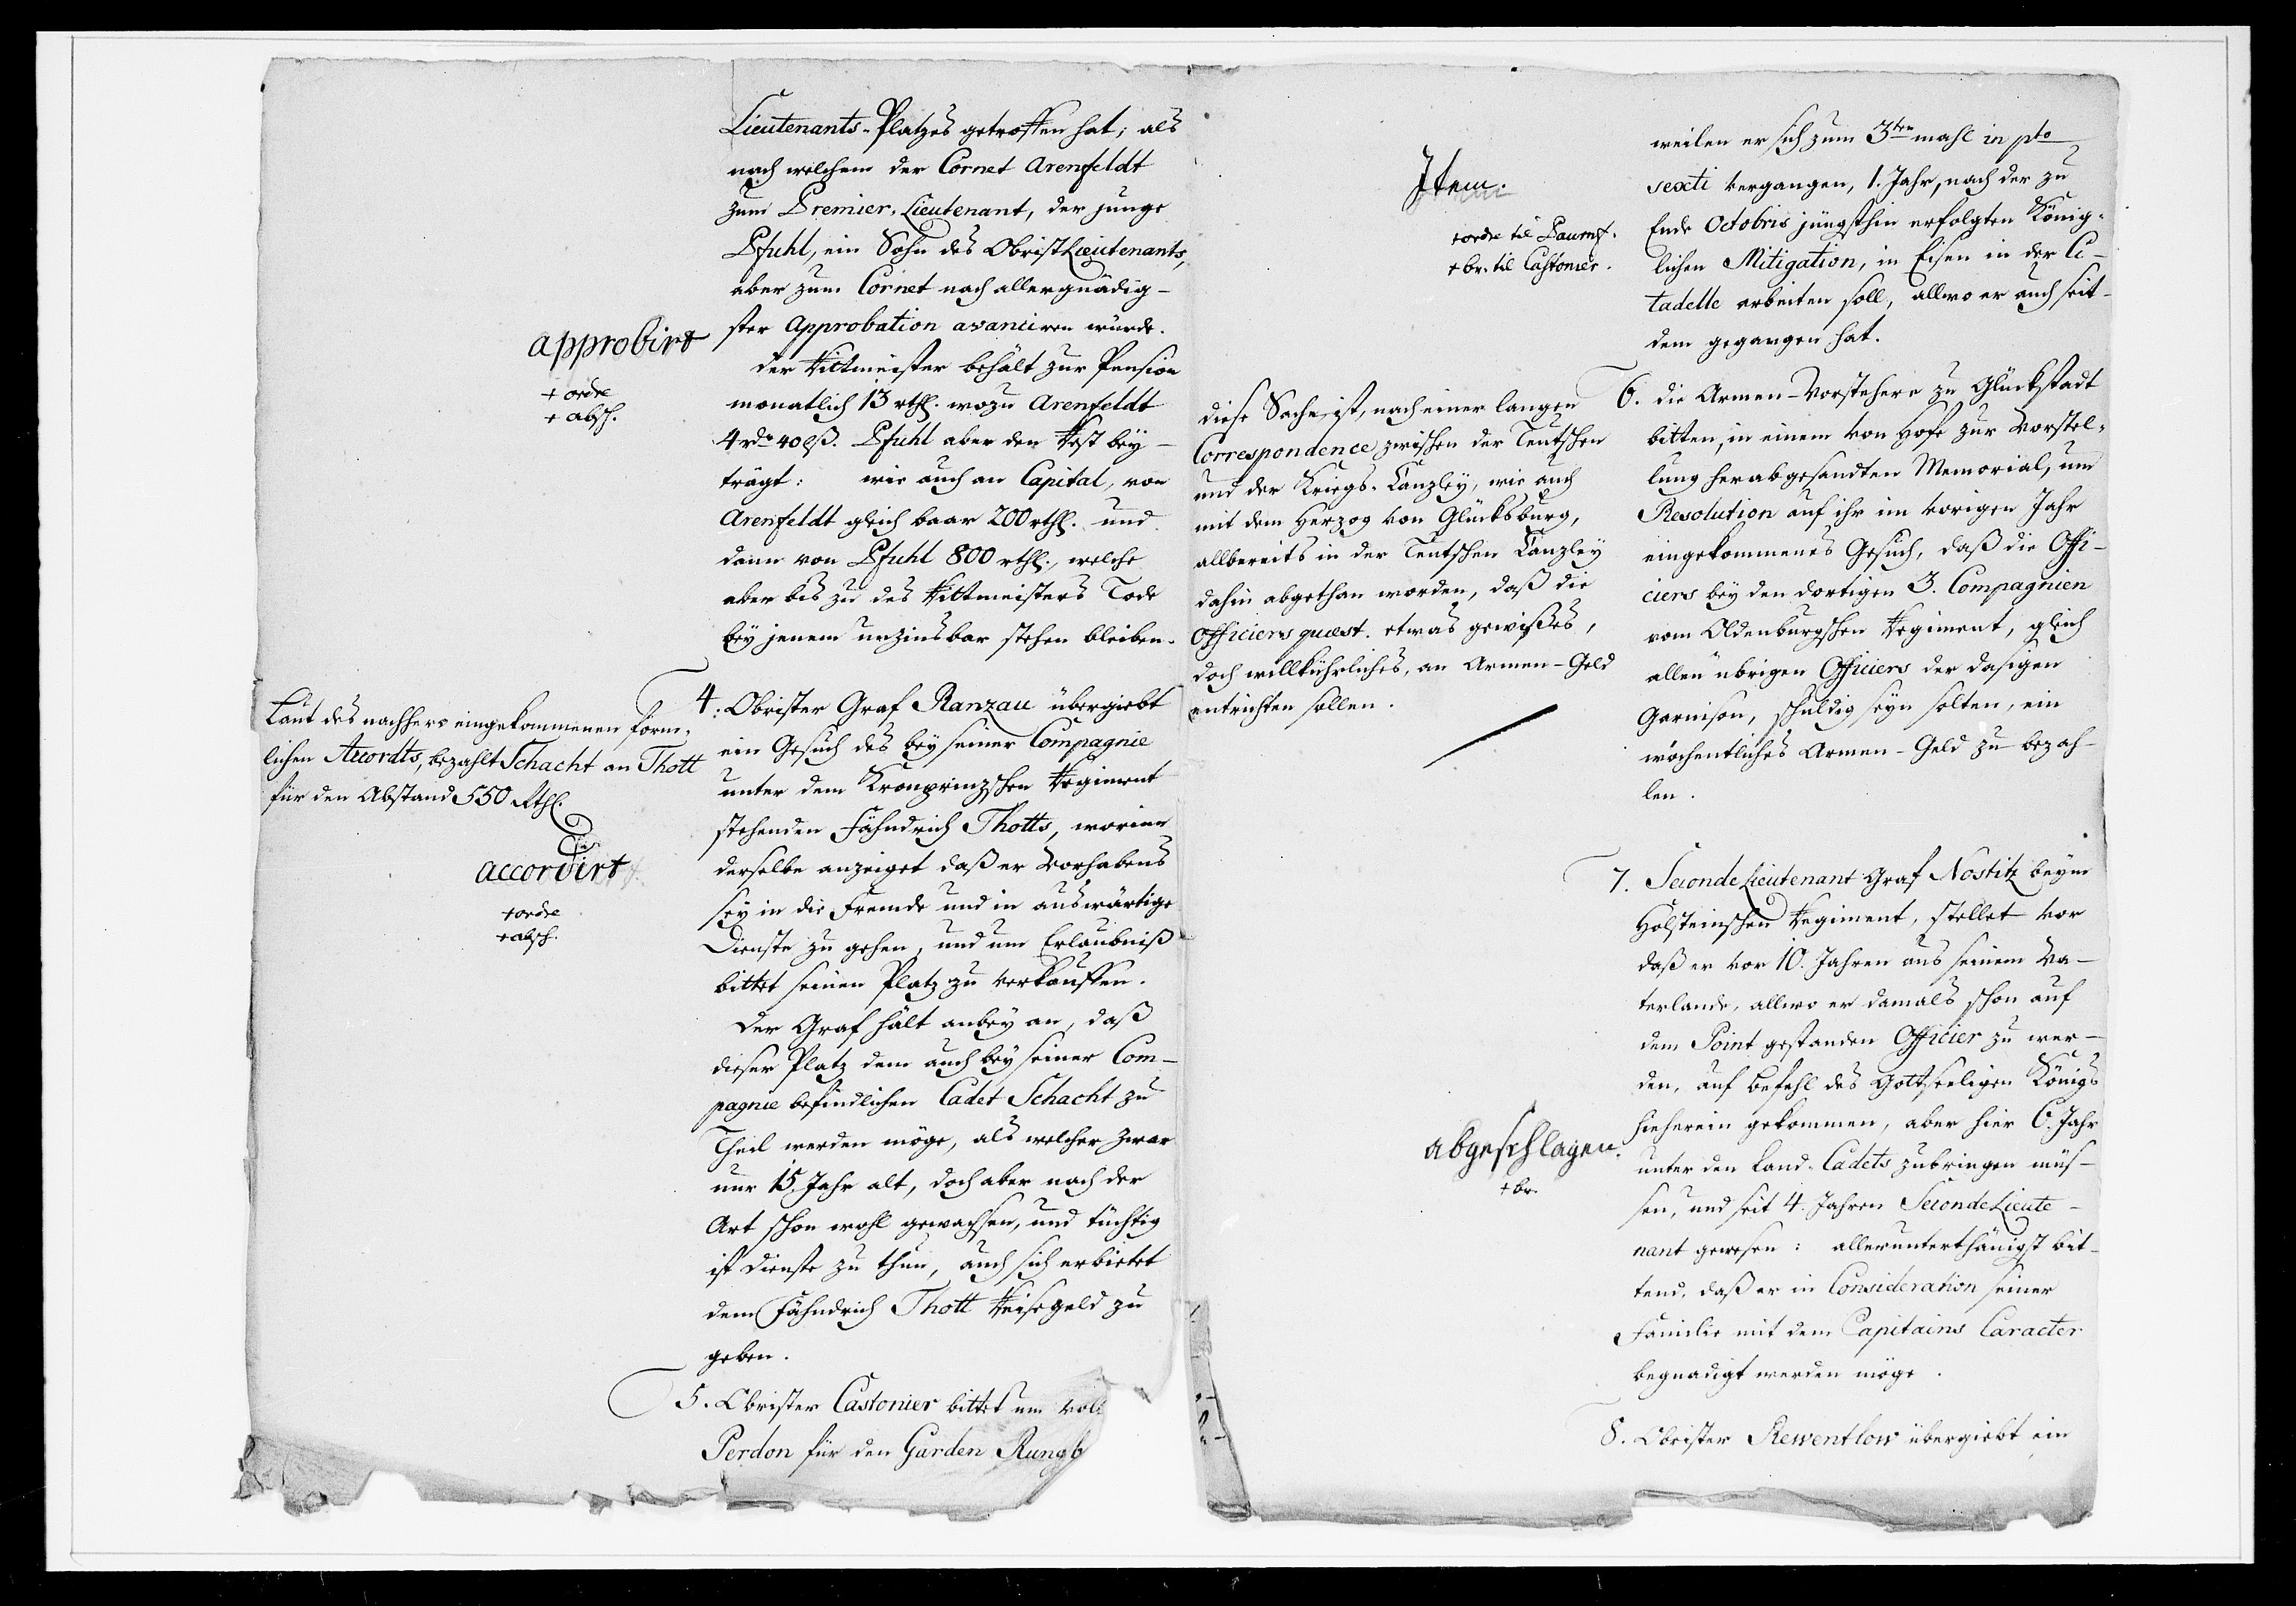 Lieutenants-Platzes getroffen hat; als
nach welchem der Cornet Arenfeldt
zum Premier-Lieutenant, der junge
Pfuhl, ein Sohn des ObristLieutenants,
aber zum Cornet nach allergnädig-
ster Approbation avanciren würde.
approbirt
+ ordre
+ absch.
der Rittmeister behält zur Pension
monatlich 13 rthl. wozu Arenfeldt
4 rdr 40 lß. Pfuhl aber den Rest bey-
trägt: wie auch an Capital, von
Arenfeldt gleich baar 200 rthl. und
dann von Pfuhl 800 rthl., welche
aber bis zu des Rittmeisters Tode
bey jenem unzinsbar stehen bleiben.
4. Obrister Graf Ranzau übergiebt
ein Gesuch des bey seiner Compagnie
unter dem Kronprinzschen Regiment
stehenden Fähndrich Thotts, worinn
derselbe anzeiget daß er Vorhabens
sey in die Fremde und in auswärtige
Dienste zu gehen, und um Erlaubniß
bittet seinen Platz zu verkauffen.
Der Graf hält anbey an, daß
dieser Platz dem auch bey seiner Com-
pagnie befindlichen Cadet Schacht zu
Theil werden möge, als welcher zwar
nur 15. Jahr alt, doch aber nach der
Art schon wohl gewachsen, und tüchtig
ist Dienste zu thun, auch sich erbietet
dem Fähndrich Thott Reisegeld zu
geben.
Laut des nachhero eingekommenen förm-
lichen Accordts, bezahlt Schacht an Thott
für den Abstand 550 Rthl.
accordirt
+ ordre
+ absch.
5. Obrister Castonier bittet um voll
Perdon für den Garden Rungb
weilen er sich zum 3ten mahl in pto
sexti vergangen, 1. Jahr, nach der zu
Ende Octobris jüngsthin erfolgten König-
lichen Mitigation, in Eisen in der Ci-
tadelle arbeiten soll, allwo er auch seit-
dem gegangen hat.
Item.
+ ordre til
+ br. til Castonier.
6. die Armen-Vorstehere zu Glückstadt
bitten, in einem von Hofe zur Vorstel-
lung herabgesandten Memorial, um
Resolution auf ihr im vorigen Jahr
eingekommenes Gesuch, daß die Offi-
ciers bey den dortigen 3. Compagnien
vom Oldenburgschen Regiment, gleich
allen übrigen Officiers der dasigen
Garnison, schuldig seyn solten, ein
wöchentliches Armen-Geld zu bezah-
len.
diese Sache ist, nach einer langen
Correspondence zwischen der Teutschen
und der Kriegs-Canzley, wie auch
mit dem Herzog von Glücksburg,
allbereits in der Teutschen Canzley
dahin abgethan worden, daß die
Officiers quæst. etwas gewißes,
doch willkührliches, an Armen-Geld
entrichten sollen.
7. SecondeLieutenant Graf Nostitz beym
Holsteinschen Regiment, stellet vor
daß er vor 10. Jahren aus seinem Va-
terlande, allwo er damals schon auf
dem Point gestanden Officier zu wer-
den, auf Befehl des Gottseeligen Königs
hieherein gekommen, aber hier 6. Jahr
unter den Land-Cadets zubringen müs-
sen, und seit 4. Jahren SecondeLieute-
nant gewesen: allerunterthänigst bit-
tend, daß er in Consideration seiner
Familie mit dem Capitains Caracter
begnadigt werden möge.
abgeschlagen.
+ br.
8. Obrister Rewentlow übergiebt ein